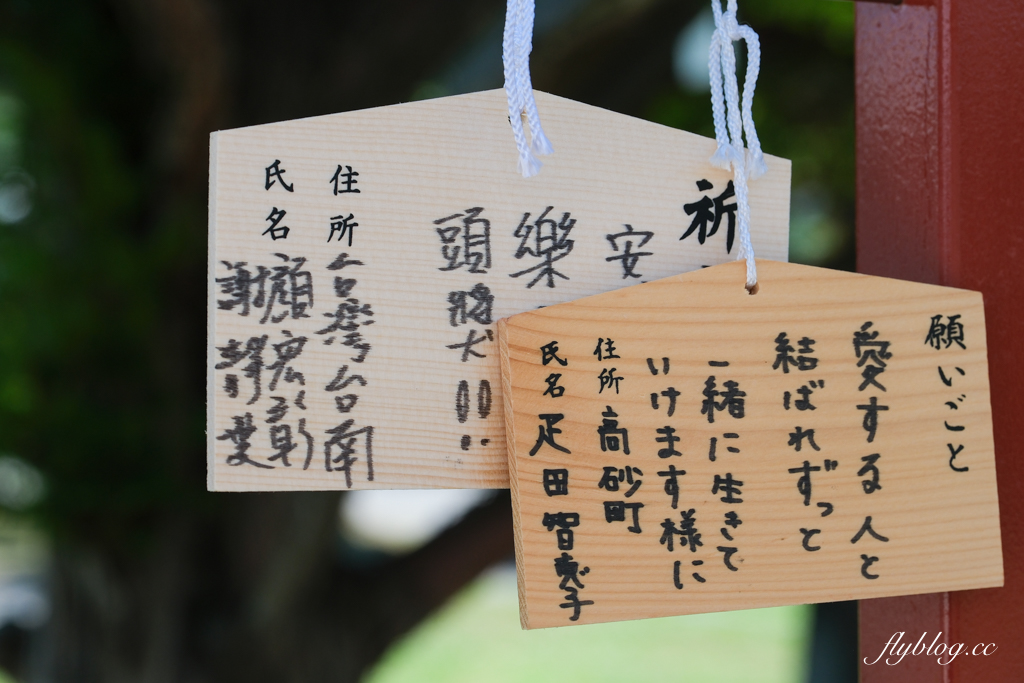 祈
安
樂
頭
將犬!!!
住所 台灣台南
氏名 顏宏彰
謝靜葉
願いごと
愛する人と
結ばれずっと
一緒に生きて
いけます様に
住所 高砂町
氏名 疋田智恵子
flyblog.cc